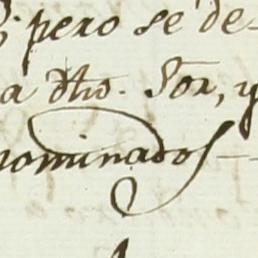 pero se de-
a dho. Sor, y
nominados